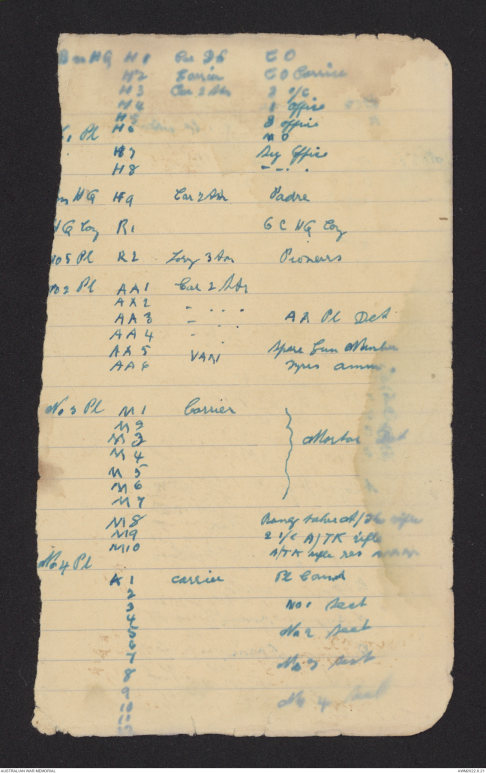 Bn HQ H1 Car 2 St C O
H2 Carrier C O Carrier
H3 Car 2 Str 2 i/c
H4 I office
H5
Pl H6 M O
H7 Sig Office
H8 " - "
HQ H9 Car 2 Str Padre
HQ Coy R1 O C HQ Coy
No 5 Pl R2 Lorry 3 ton Pioneers
No 2 Pl AA1 Car 2 Str
AA2
AA3 AA Pl Det
AA4
AA5 VAN Spare Gun Number
AA6 Tyres ammn
No 3 Pl M1 Carrier
M2
M3 Mortar Det
M4
M5
M6
M7
M8 Range taker A/Tk rifle
M9 2 i/c A/TK rifle
M10 A/TK rifle res
No 4 Pl
K1 carrier Pl Comd
2
3 No 1 Sect
4
5 No 2 Sect
6
7 No 3 Sect
8
9 No 4 Sect
10
AUSTRALIAN WAR MEMORIAL